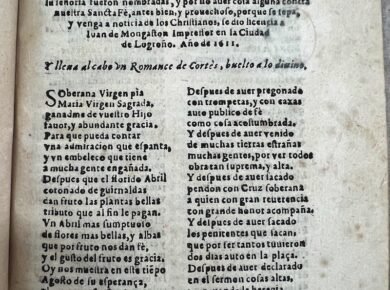 ſu ſeñoria fueron nombradas, y por no auer coſa alguna contra
nueſtra Sancta Fè, antes bien, y prouechoſo, porque ſe ſepa,
y venga a noticia de los Chriſtianos, ſe dio licencia a
Iuan de Mongaſton Impreſſor en la Ciudad
de Logroño. Año de 1611.
Y lleua al cabo vn Romance de Cortès, buelto a lo diuino.
SOberana Virgen pia
Maria Virgen Sagrada,
ganadme de vueſtro Hijo
fauor, y abundante gracia
Para que pueda contar
vna admiracion que eſpanta,
y vn embeleco que tiene
a mucha gente engañada.
Deſpues que el florido Abril
coronado de guirnaldas
dan fruto las plantas bellas
tributo que al fin le pagan.
Vn Abril mas ſumptuoſo
de flores mas bellas, y albas
que por fruto nos dan fè,
y el guſto del fruto es gracia.
Oy nos mueſtra en eſte tiẽpo
Agoſto de ſu eſperança,
Deſpues de auer pregonado
con trompetas, y con caxas
auto publico de fè
como coſa acoſtumbrada,
Y deſpues de auer venido
de muchas tierras eſtrañas
muchas gentes, por ver todos
obra tan ſubida, y alta.
Y deſpues de auer ſacado
pendon con Cruz ſoberana
a quien con gran reuerencia
con grande honor acompaña.
Y deſpues de auer ſacado
los penitentes que ſacan,
que por ſer tantos tuuieron
dos dias auto en la plaça.
Deſpues de auer declarado
en el ſermon coſas altas,